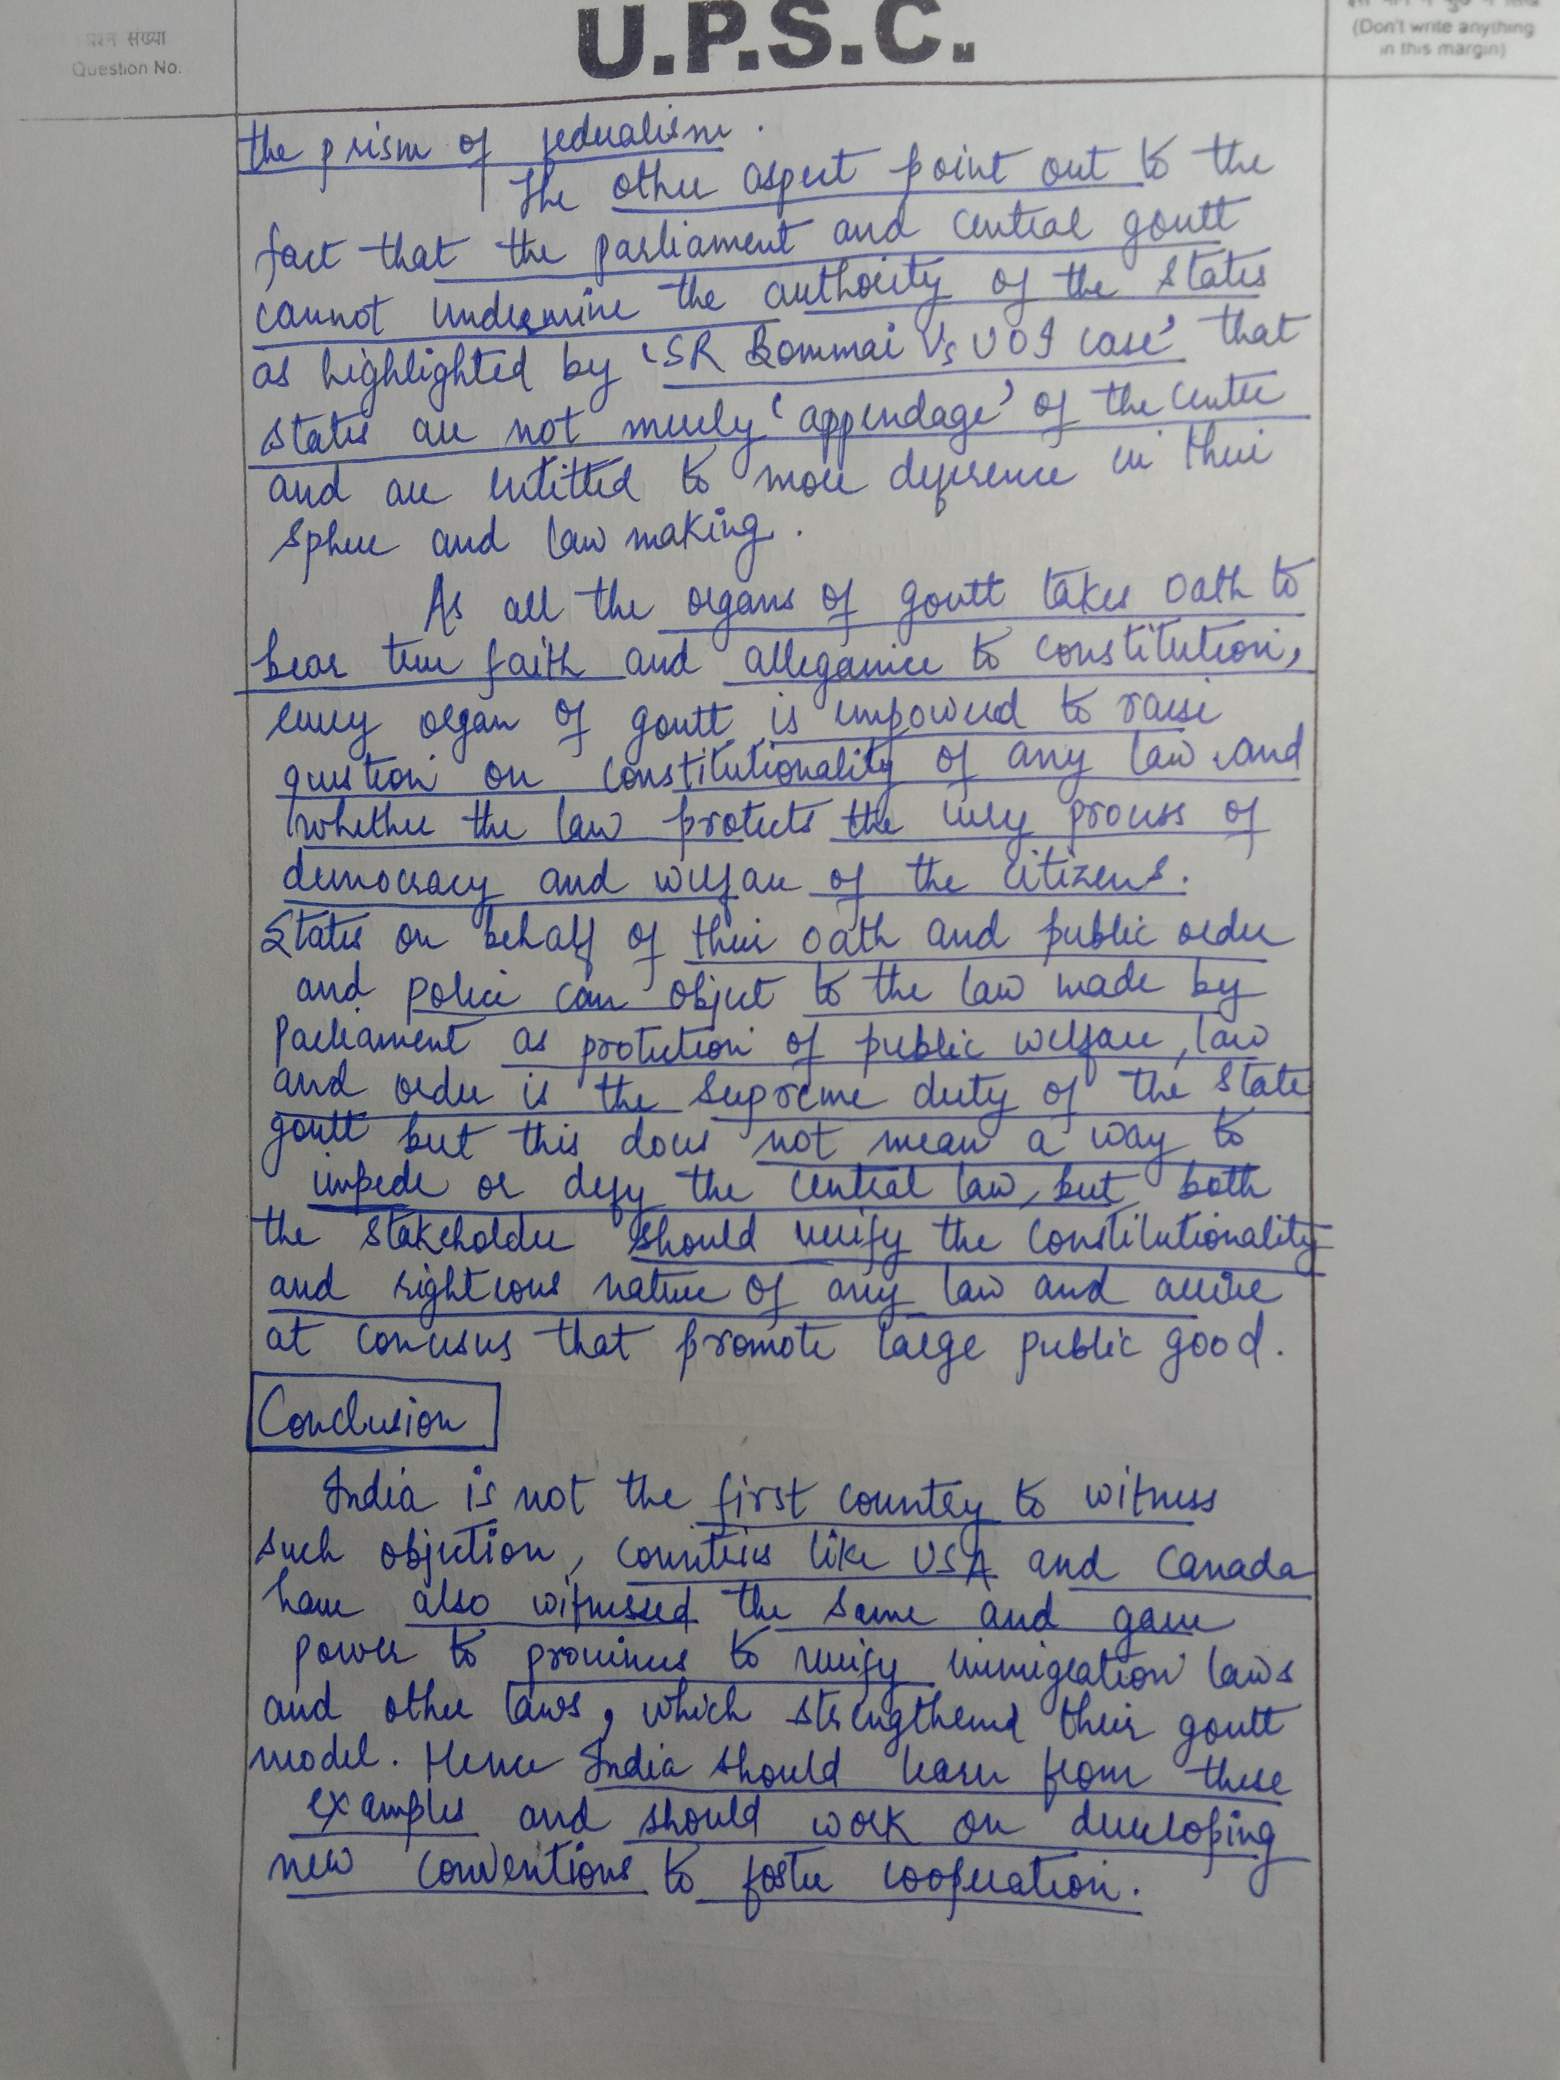 प्रश्न संख्या
Question No.
U.P.S.C.
(Don't write anything
in this margin)
the prism of federalism.
The other aspect point out to the
fact that the parliament and central govtt
cannot undermine the authority of the states
as highlighted by 'SR Bommai Vs UOI case' that
states are not merely 'appendage' of the center
and are entitled to more deference in their
sphere and law making.
As all the organs of govtt takes oath to
bear true faith and allegiance to constitution,
every organ of govtt is empowered to raise
question on constitutionality of any law and
whether the law protects the very process of
democracy and welfare of the citizens.
States on behalf of their oath and public order
and police can object to the law made by
Parliament as protection of public welfare, law
and order is the supreme duty of the state
govtt but this does not mean a way to
impede or defy the central law, but both
the stakeholder should verify the constitutionality
and righteous nature of any law and arrive
at concusus that promote large public good.
Conclusion
India is not the first country to witness
such objection, countries like USA and Canada
have also witnessed the same and gave
power to provinces to verify immigration laws
and other laws, which strengthened their govtt
model. Hence India should learn from these
examples and should work on developing
new conventions to foster cooperation.